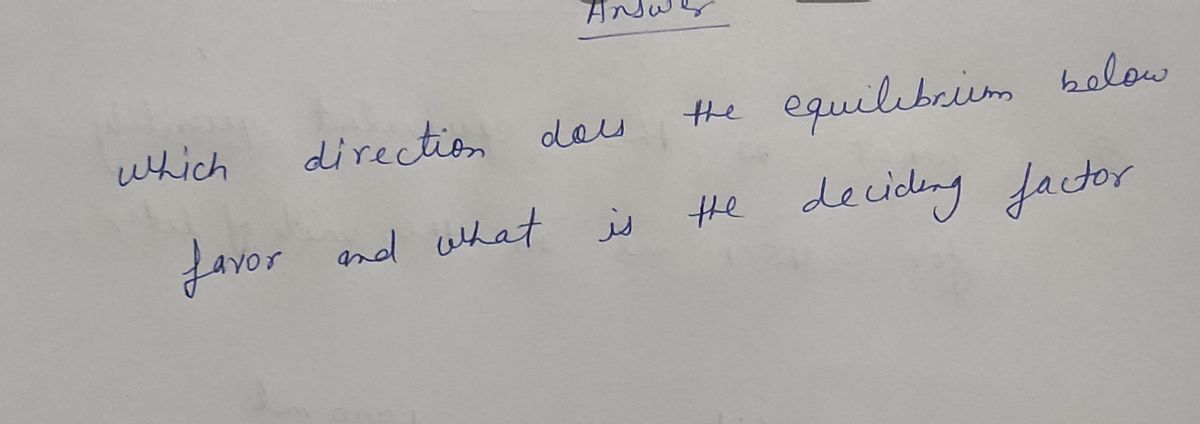 Answer
which direction does the equilibrium below
favor and what is the deciding factor